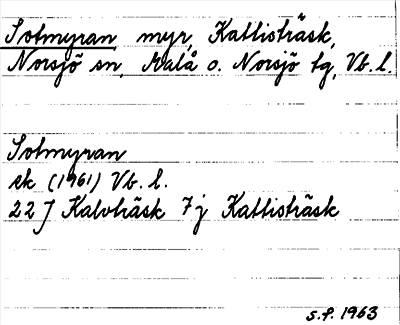 Sotmyran myr, Kattisträsk,
Norsjö sn, Malå o. Norsjö tg, Vb. l.
Sotmyran
ek (1961) Vb. l.
22 J Kalvträsk 7 j Kattisträsk
s.f. 1963